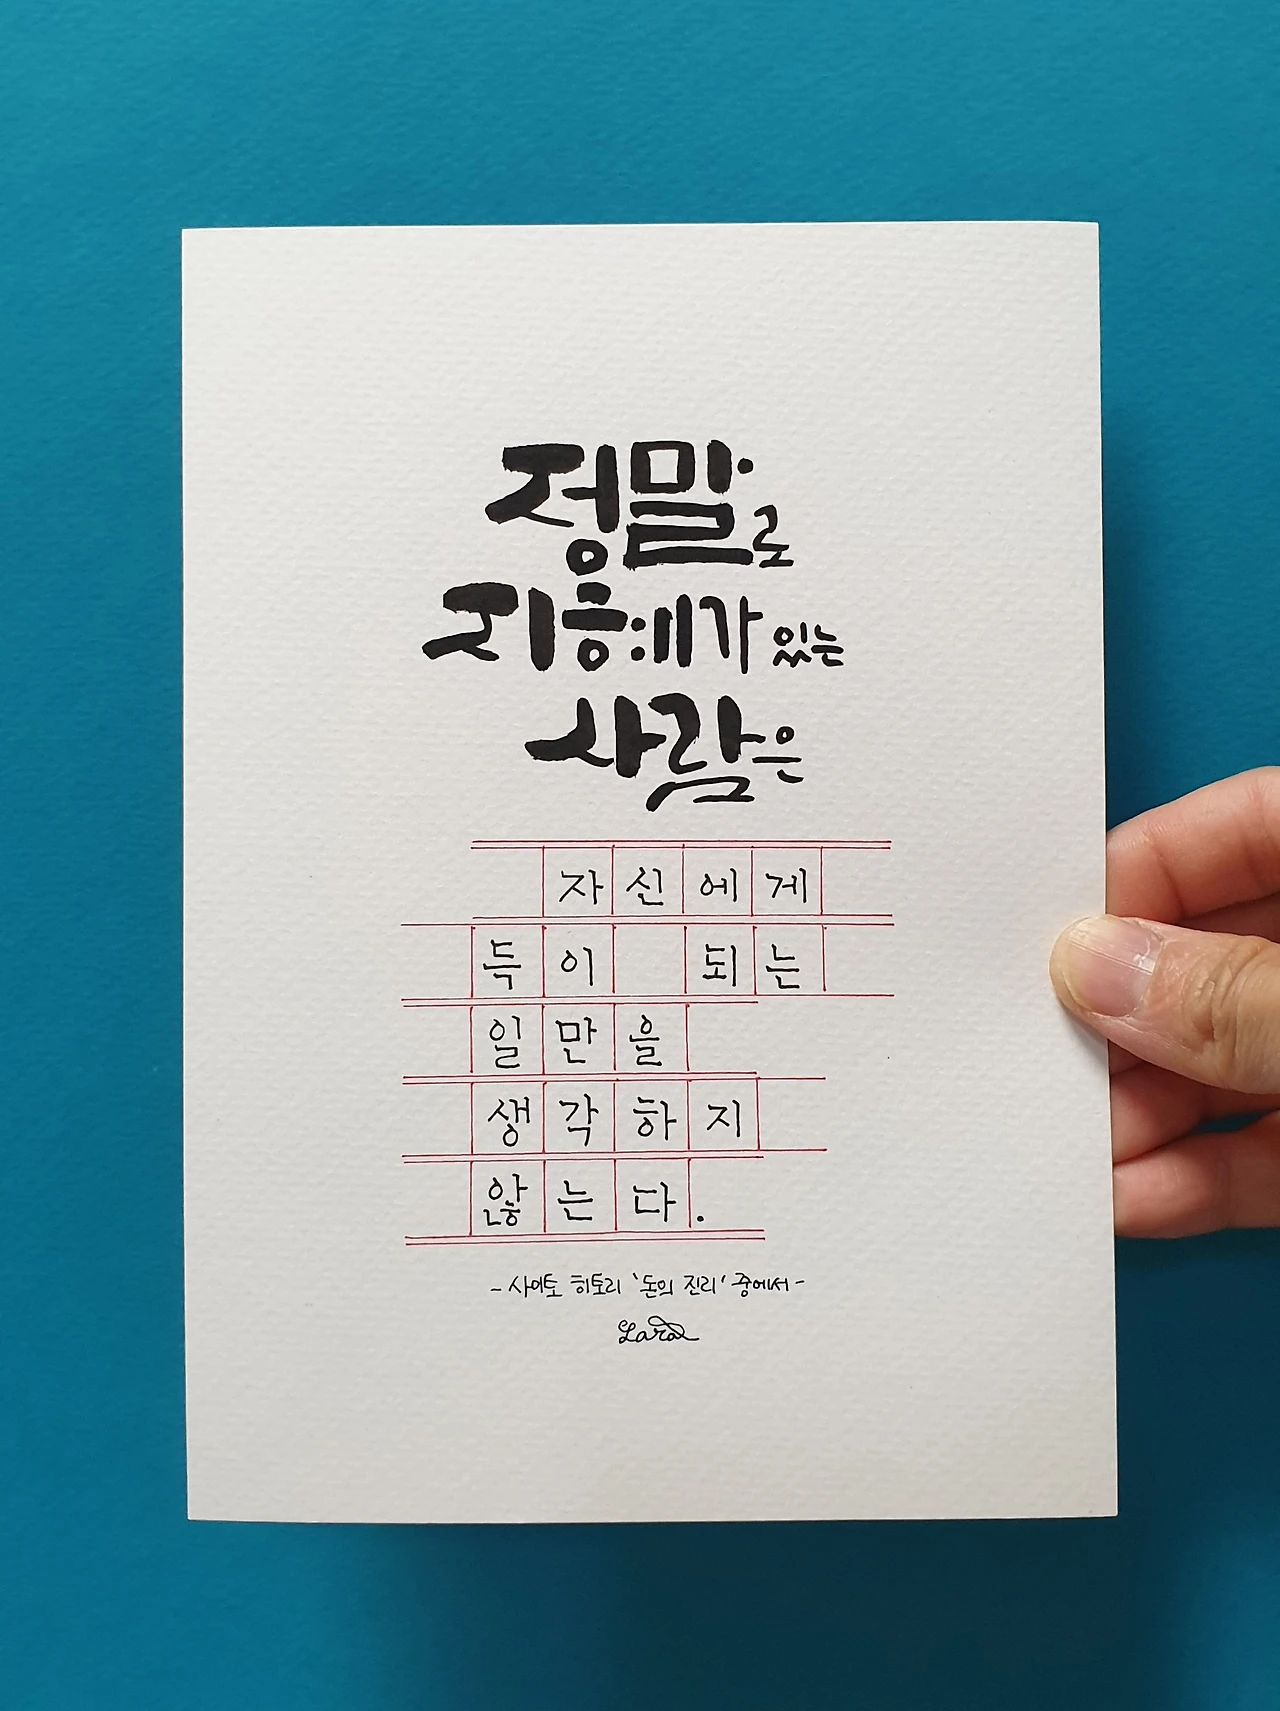 정말로
지혜가 있는
사람은
자신에게
득이 되는
일만을
생각하지
않는다.
- 사이토 히토리 '돈의 진리' 중에서 -
Lara